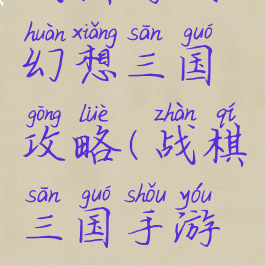 huàn xiǎng sān guó
幻想三国
gōng lüè zhàn qí
攻略(战棋
sān guó shǒu yóu
三国手游